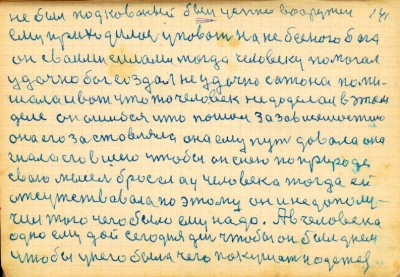 не был подкованый был цепко вооружен 141
ему приходилос уповат на небесного бога
он своими силами тогда человеку помогал
удачно бог создал неудачно сатона поми
шала и вот что то человек недоделал в этом
деле он ошибся что пошол за зовишмостию
она его заставляла она ему пут довала она
гнала его вшею чтобы он с нею по природе
свои мысли бросела у человека тогда ей
отсуствовала поэтому он и недополу-
чил того чего было ему надо. А в человека
одно ему дай сегодня для чтобы он был днем
чтобы у него было чего покушат и одется